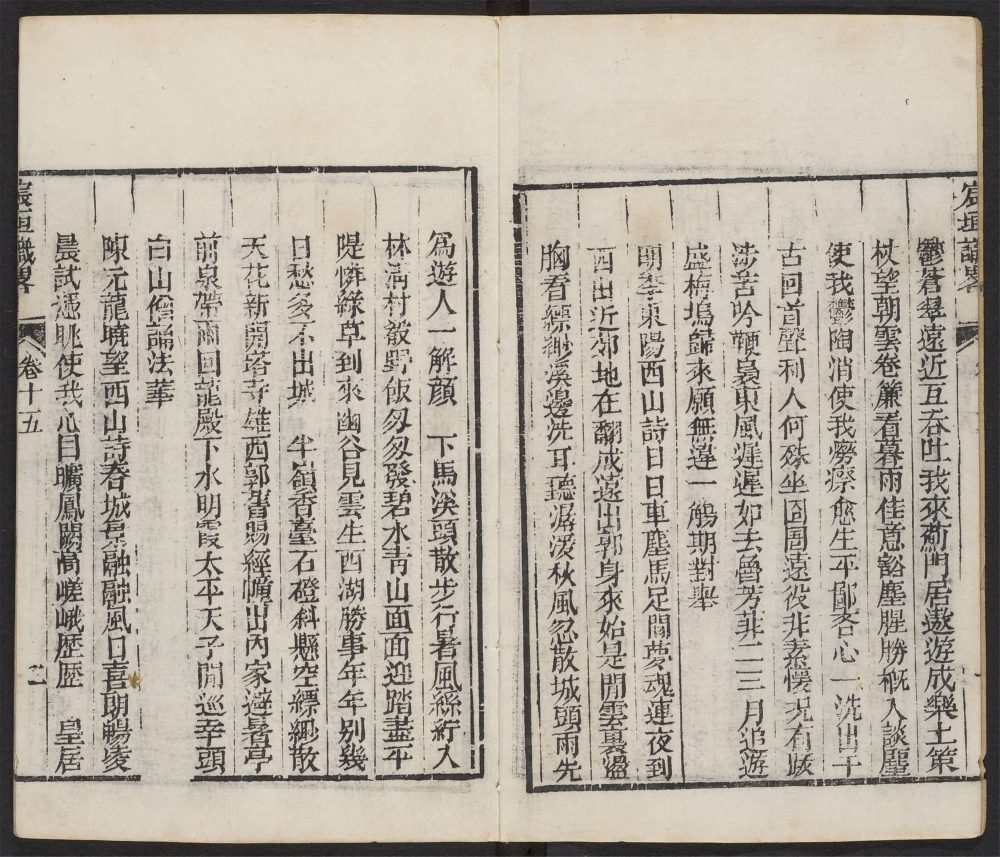 宸垣識畧
鬱蒼翠遠近互吞吐我來薊門居遨遊成樂土策
杖望朝雲卷簾看暮雨佳意豁塵腥勝概入談麈
使我鬱陶消使我癆瘵愈生平鄙吝心一洗出千
古回首聲利人何殊坐囹圄遠役非素懷况有跋
涉苦吟鞭裊東風遲遲如去魯芳菲二三月追遊
盛梅塢歸來願無違一觴期對舉
明李東陽西山詩日日車塵馬足間夢魂連夜到
西山近郊地在翻成遠出郭身來始是閒雲裏盪
胸看縹緲溪邊洗耳聽潺湲秋風忽散城頭雨先
為遊人一解顏　下馬溪頭散步行暑風絺綌入
林淸村殽野飯匆匆發碧水靑山面面迎踏盡平
隄憐綠草到來幽谷見雲生西湖勝事年年别幾
日愁多不出城　半嶺香臺石磴斜懸空縹緲散
天花新開塔寺雄西郭舊賜經幢出內家避暑亭
前泉帶雨回龍殿下水明霞太平天子閒巡幸頭
白山僧誦法華
陳元龍曉望西山詩春城景融融風日喜朗暢凌
晨試憑眺使我心目曠鳳闕高嵯峨歴歴　皇居
宸垣識畧
卷十五